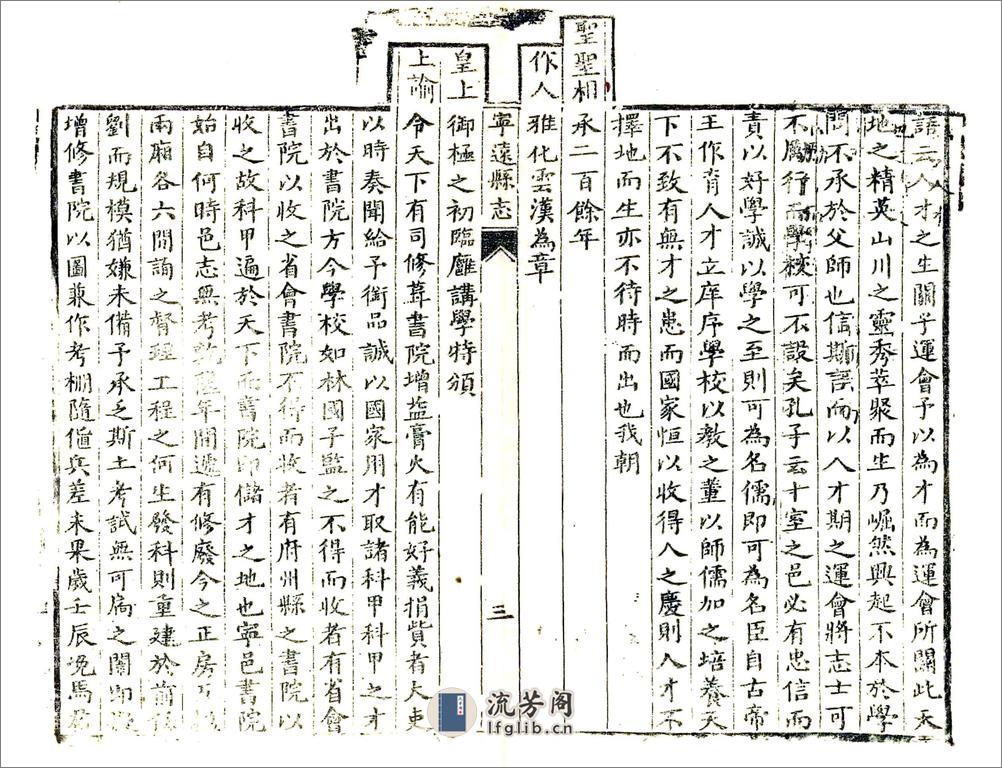 語云人才之生關乎運會予以為才而為運會所關此天
地之精英山川之靈秀萃聚而生乃崛然興起不本於學
問不承於父師也信斯語而以人才期之運會將志士可
不厲行而學校可不設矣孔子云十室之邑必有忠信而
責以好學誠以學之至則可為名儒即可為名臣自古帝
王作育人才立庠序學校以教之董以師儒加之培養天
下不致有無才之患而國家恒以收得人之慶則人才不
擇地而生亦不待時而出也我朝
聖聖相承二百餘年
作人雅化雲漢為章
寧遠縣志
三
皇上御極之初臨雝講學特頒
上諭令天下有司修葺書院增益膏火有能好義捐貲者大吏
以時奏聞給予銜品誠以國家用才取諸科甲科甲之才
出於書院方今學校如林國子監之不得而收者有省會
書院以收之省會書院不得而收者有府州縣之書院以
收之故科甲遍於天下而舊院即儲才之地也寧邑書院
始自何時邑志無考乾隆年間遞有修廢今之正房五
兩廂各六間詢之督理工程之何生發科則重建於前
劉而規模猶嫌未備予承乏斯土考試無可扃之闈即
增修書院以圖兼作考棚隨值兵差未果歲壬辰兔馬
流芳阁
lfglib.cn